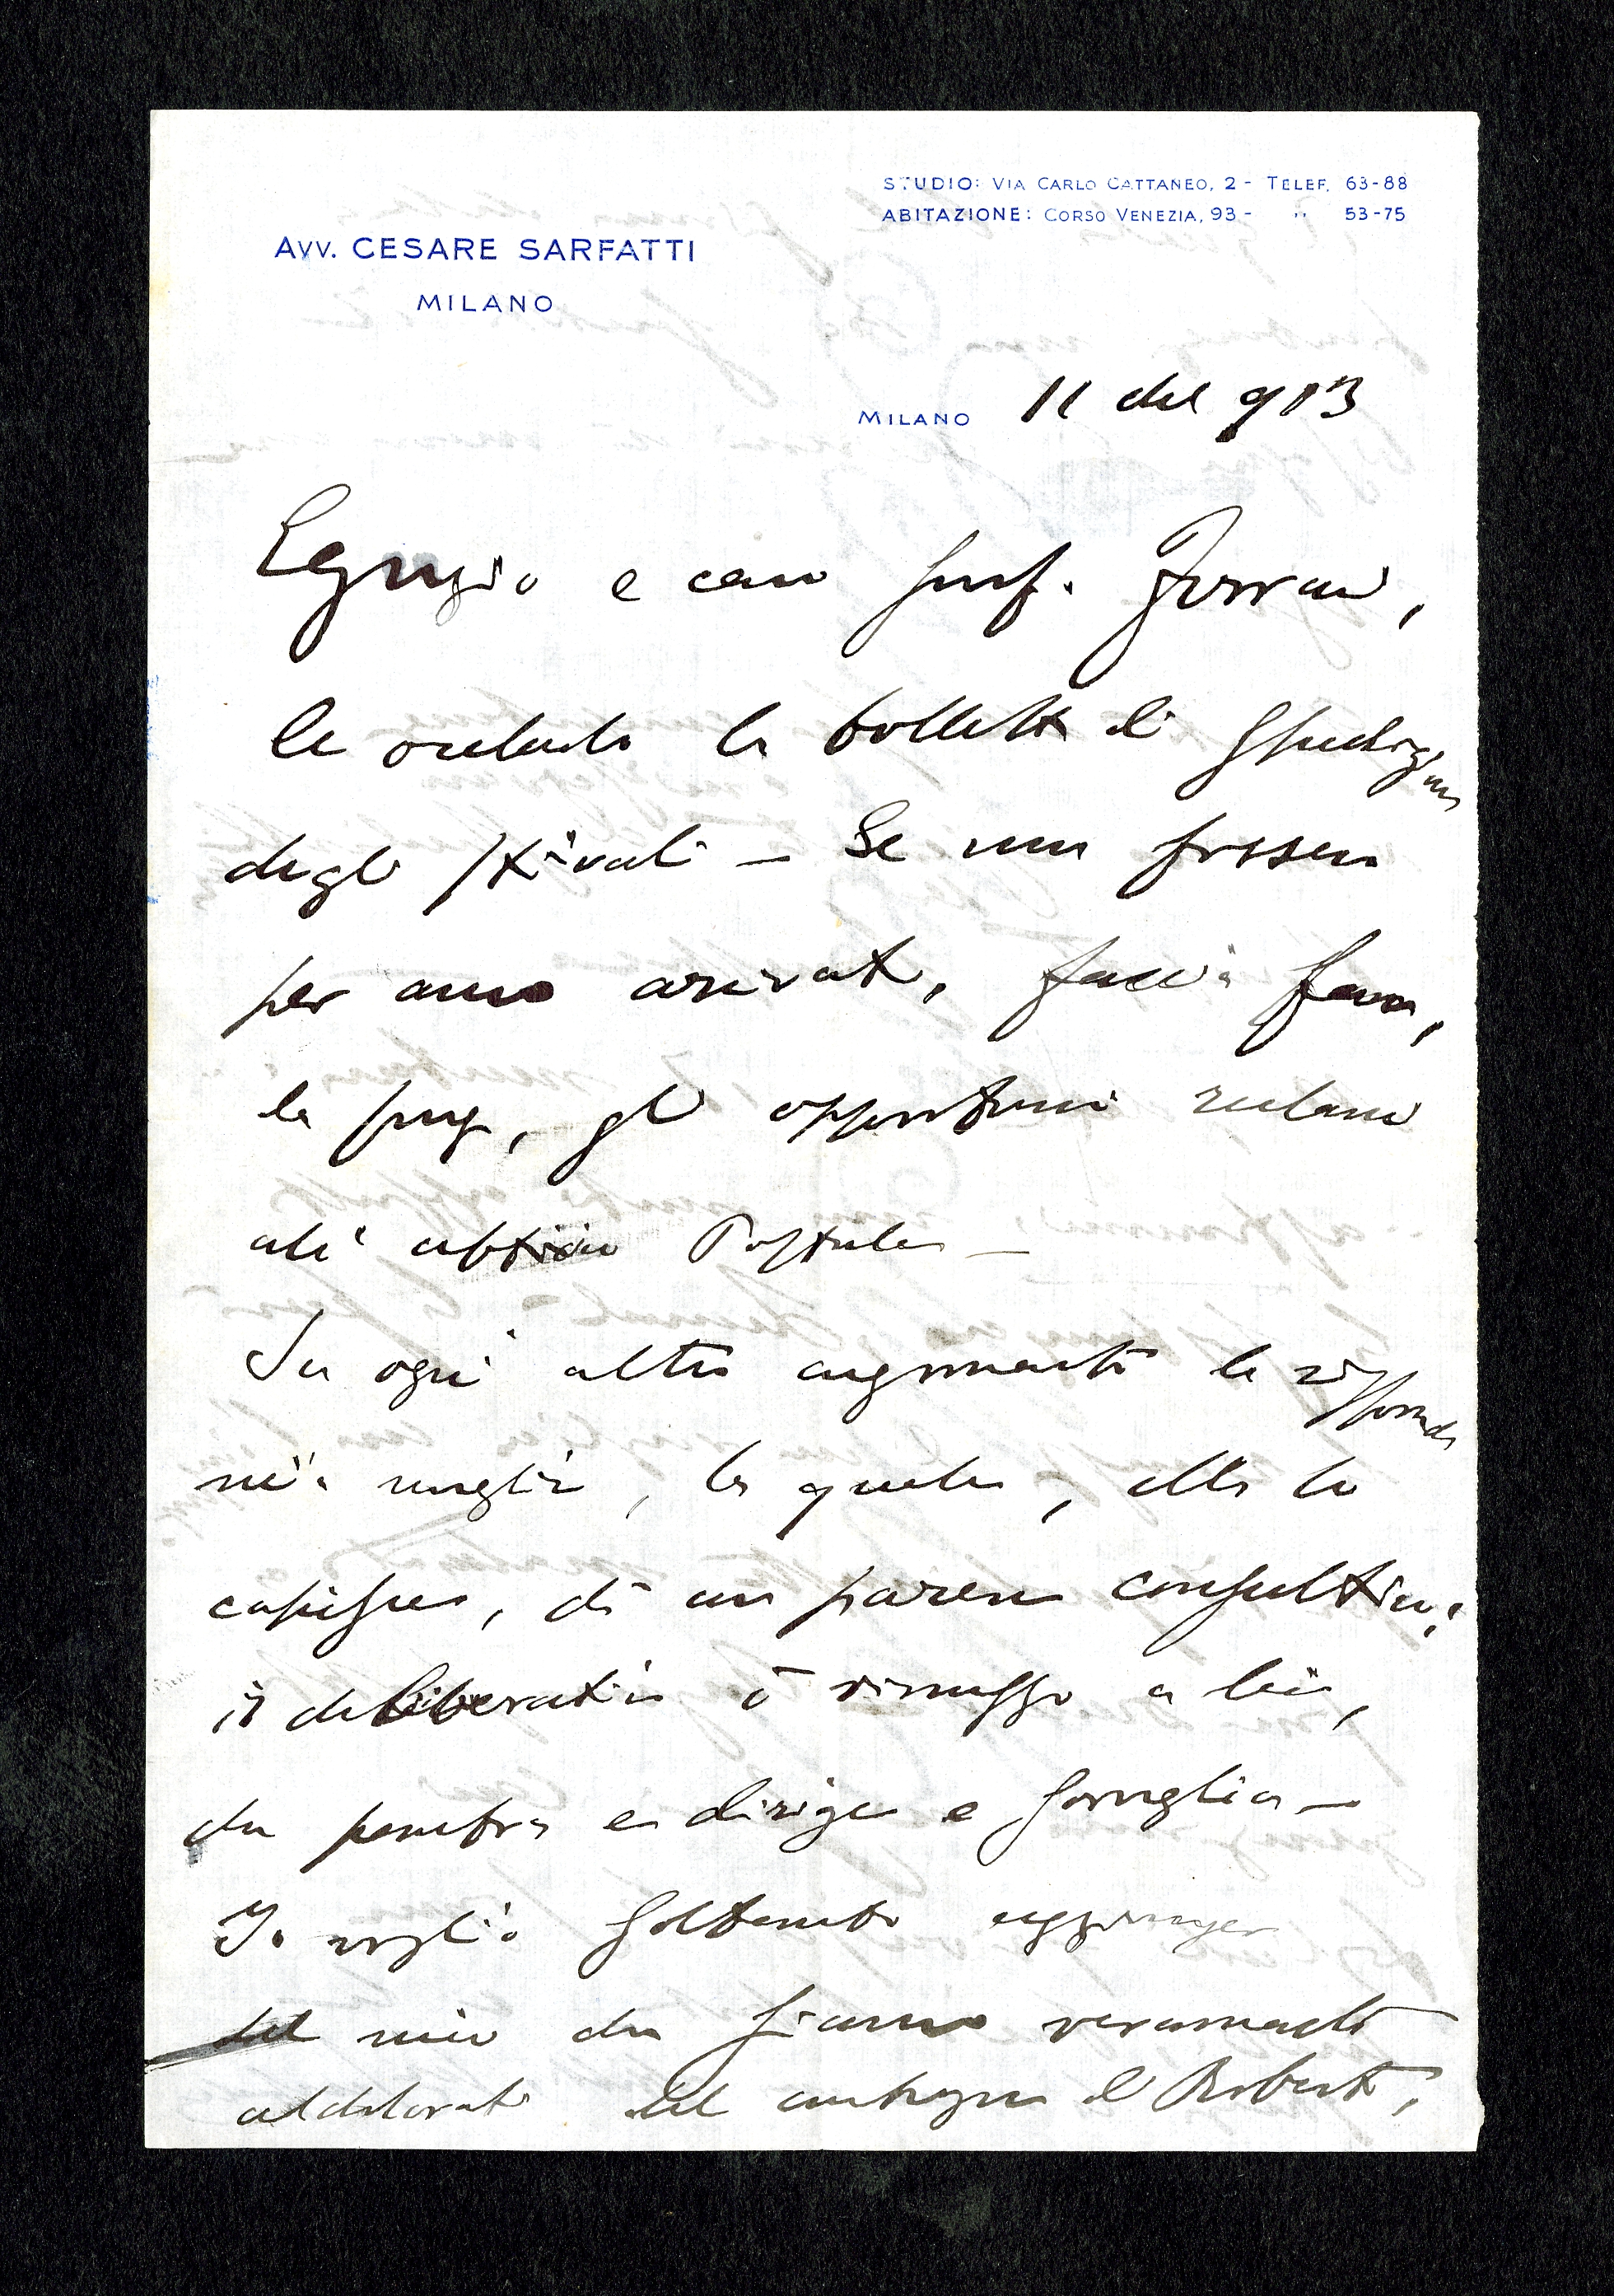 STUDIO: VIA CARLO CATTANEO, 2 - TELEF. 63-88
ABITAZIONE: CORSO VENEZIA, 93 - " 53-75
AVV. CESARE SARFATTI
MILANO
MILANO 11 913
Egregio e caro prof.
le la bolletta di spedizione
degli stivali - Se non fossero
per anco arrivati, faccia
la prego, gli opportuni reclami
all' Postale -
Su ogni altro argomento le risponde
mia moglie, la quale, ella lo
capisce, dà un parere consultivo;
il deliberativo è rimesso a lei,
che e dirige e consiglia -
Io voglio soltanto aggiungere
del mio che siamo veramente
addolorati del contegno di Roberto,